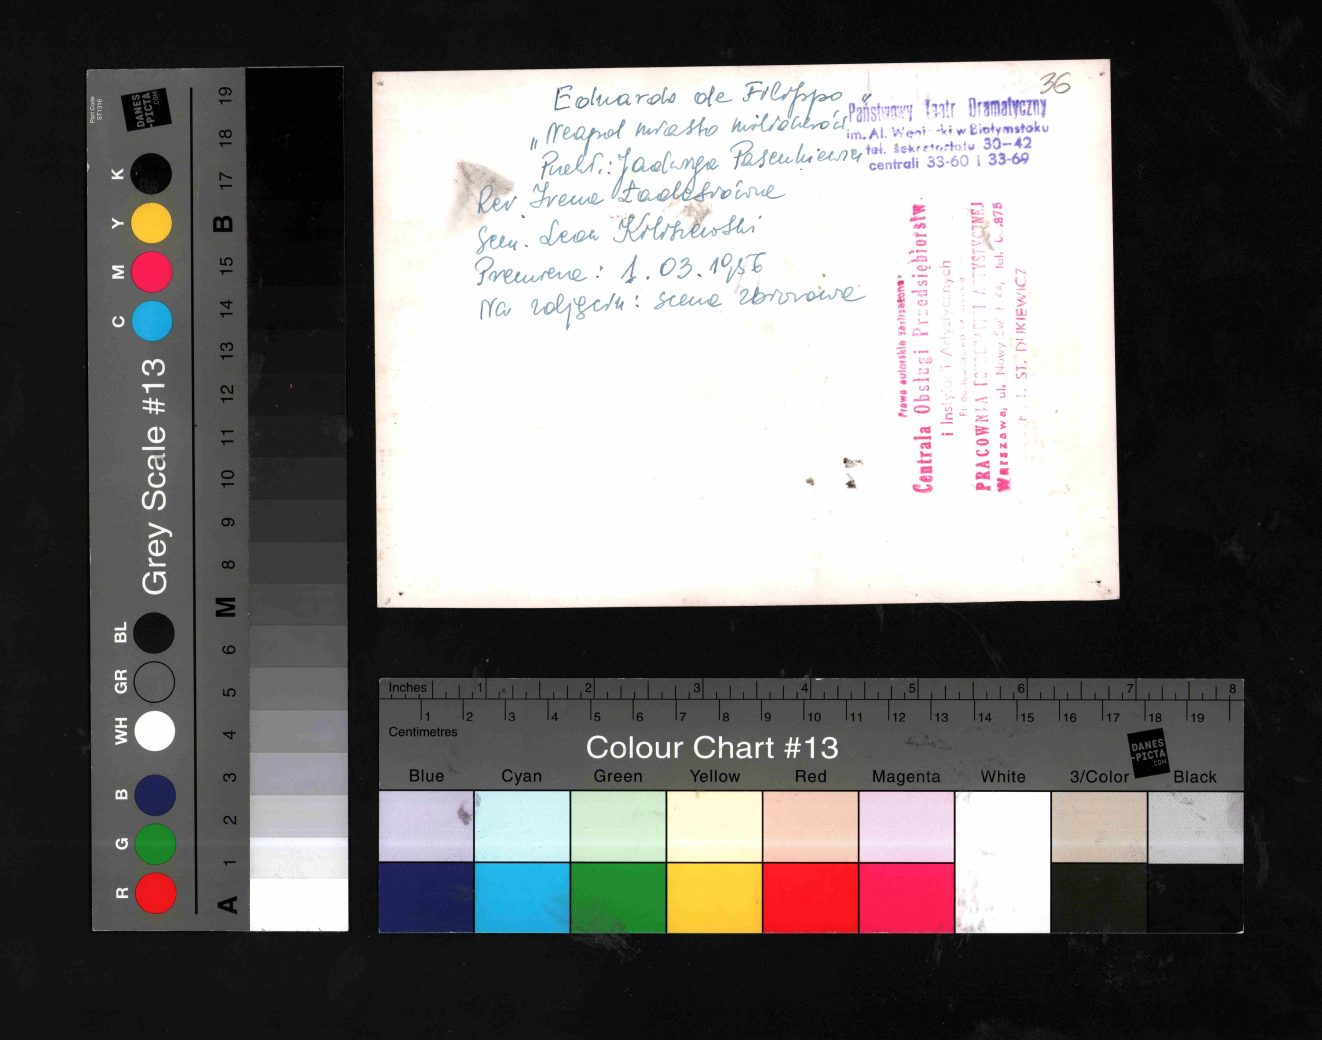 36
Eduardo de Filippo
„Neapol miasto milionerów"
Przekł.: Jadwiga Pasenkiewicz
Reż Irena Ładosiówna
Scen. Leon
Premiera: 1.03.1956
Na zdjęciu: scena zbiorowa
Państwowy Teatr Dramatyczny
im. Al. Węgierki w Białymstoku
tel. Sekretariatu 30-42
centrali 33-60 i 33-69
Prawa autorskie zastrzeżone
Centrala Obsługi Przedsiębiorstw
i Instytucji Artystycznych
PRACOWNIA FOTOGRAFII ARTYSTYCZNEJ
Warszawa, ul. Nowy Świat
ST. DUKIEWICZ
Part Code
ST1316
DANES
-PICTA
.COM
Grey Scale #13
R G B WH GR BL C M Y K
A 1 2 3 4 5 6 M 8 9 10 11 12 13 14 15 B 17 18 19
Inches 1 2 3 4 5 6 7 8
1 2 3 4 5 6 7 8 9 10 11 12 13 14 15 16 17 18 19
Centimetres
Colour Chart #13
DANES
-PICTA
.COM
Blue Cyan Green Yellow Red Magenta White 3/Color Black